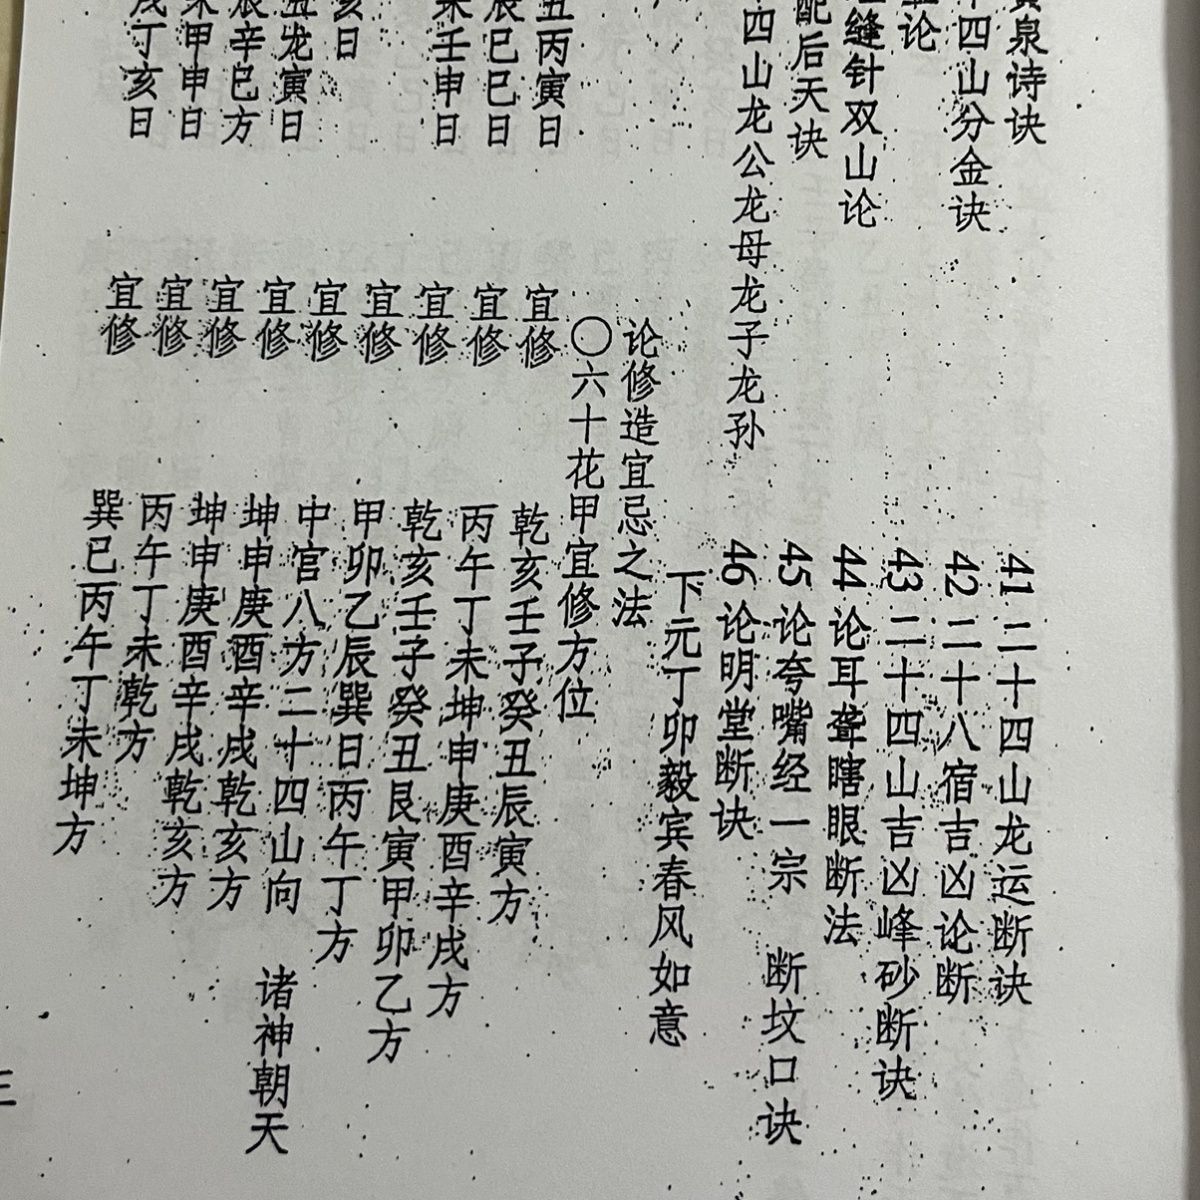 泉诗诀
41 二十四山龙运断诀
十四山分金诀
42 二十八宿吉凶论断
论
43 二十四山吉凶峰砂断诀
缝针双山论
44 论耳聋瞎眼断法
配后天诀
45 论夸嘴经一宗 断坟口诀
四山龙公龙母龙子龙孙
46 论明堂断诀
下元丁卯毅宾春风如意
论修造宜忌之法
〇六十花甲宜修方位
丑丙寅日 宜修 乾亥壬子癸丑辰寅方
辰巳巳日 宜修 丙午丁未坤申庚酉辛戌方
未壬申日 宜修 乾亥壬子癸丑艮寅甲卯乙方
宜修 甲卯乙辰巽日丙午丁方
亥日 宜修 中宫八方二十四山向 诸神朝天
丑龙寅日 宜修 坤申庚酉辛戌乾亥方
辰辛巳方 宜修 坤申庚酉辛戌乾亥方
未甲申日 宜修 丙午丁未乾方
戌丁亥日 宜修 巽巳丙午丁未坤方
三